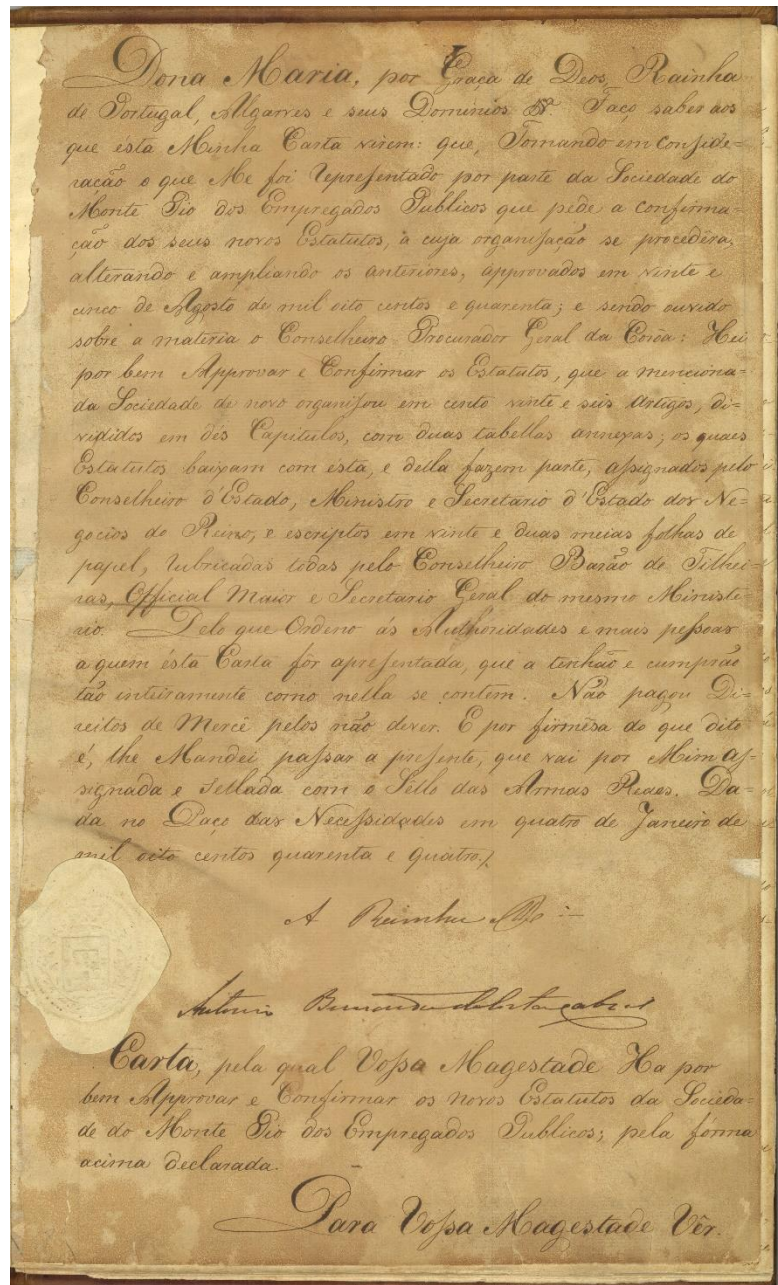 Dona Maria, por Graça de Deos, Rainha
de Portugal, Algarves e seus Dominios &ª. Faço saber aos
que ésta Minha Carta virem: que, Tomando em conside=
ração o que Me foi representado por parte da Sociedade do
Monte Pio dos Empregados Publicos que péde a confirma=
ção dos seus novos Estatutos, á cuja organisação se procedêra,
alterando e ampliando os anteriores, approvados em vinte e
cinco de Agosto de mil oito centos e quarenta; e sendo ouvido
sobre a materia o Conselheiro Procurador Geral da Corôa: Hei
por bem Approvar e Confirmar os Estatutos, que a menciona=
da Sociedade de novo organisou em cento vinte e seis Artigos, di=
vididos em dés Capitulos, com duas tabellas annexas; os quaes
Estatutos baixam com ésta, e della fazem parte, assignados pelo
Conselheiro d'Estado, Ministro e Secretario d'Estado dos Ne=
gocios do Reino, e escriptos em vinte e duas meias folhas de
papel, rubricadas todas pelo Conselheiro Barão de Tilhei=
ras, Official Maior e Secretario Geral do mesmo Ministe=
rio. Pelo que Ordeno ás Authoridades e mais pessoas
a quem ésta Carta fôr apresentada, que a tenhão e cumprão
tão inteiramente como nella se contêm. Não pagou Di=
reitos de Mercê pelos não dever. E por firmêsa do que dito
é, lhe Mandei passar a presente, que vai por Mim as=
signada e Sellada com o Sello das Armas Reaes. Da=
da no Paço das Necessidades em quatro de Janeiro de
mil oito centos quarenta e quatro./
A Rainha
Antonio Bernardo da Costa Cabral
Carta, pela qual Vossa Magestade Ha por
bem Approvar e Confirmar os novos Estatutos da Socieda=
de do Monte Pio dos Empregados Publicos; pela forma
acima declarada.
Para Vossa Magestade Vêr.